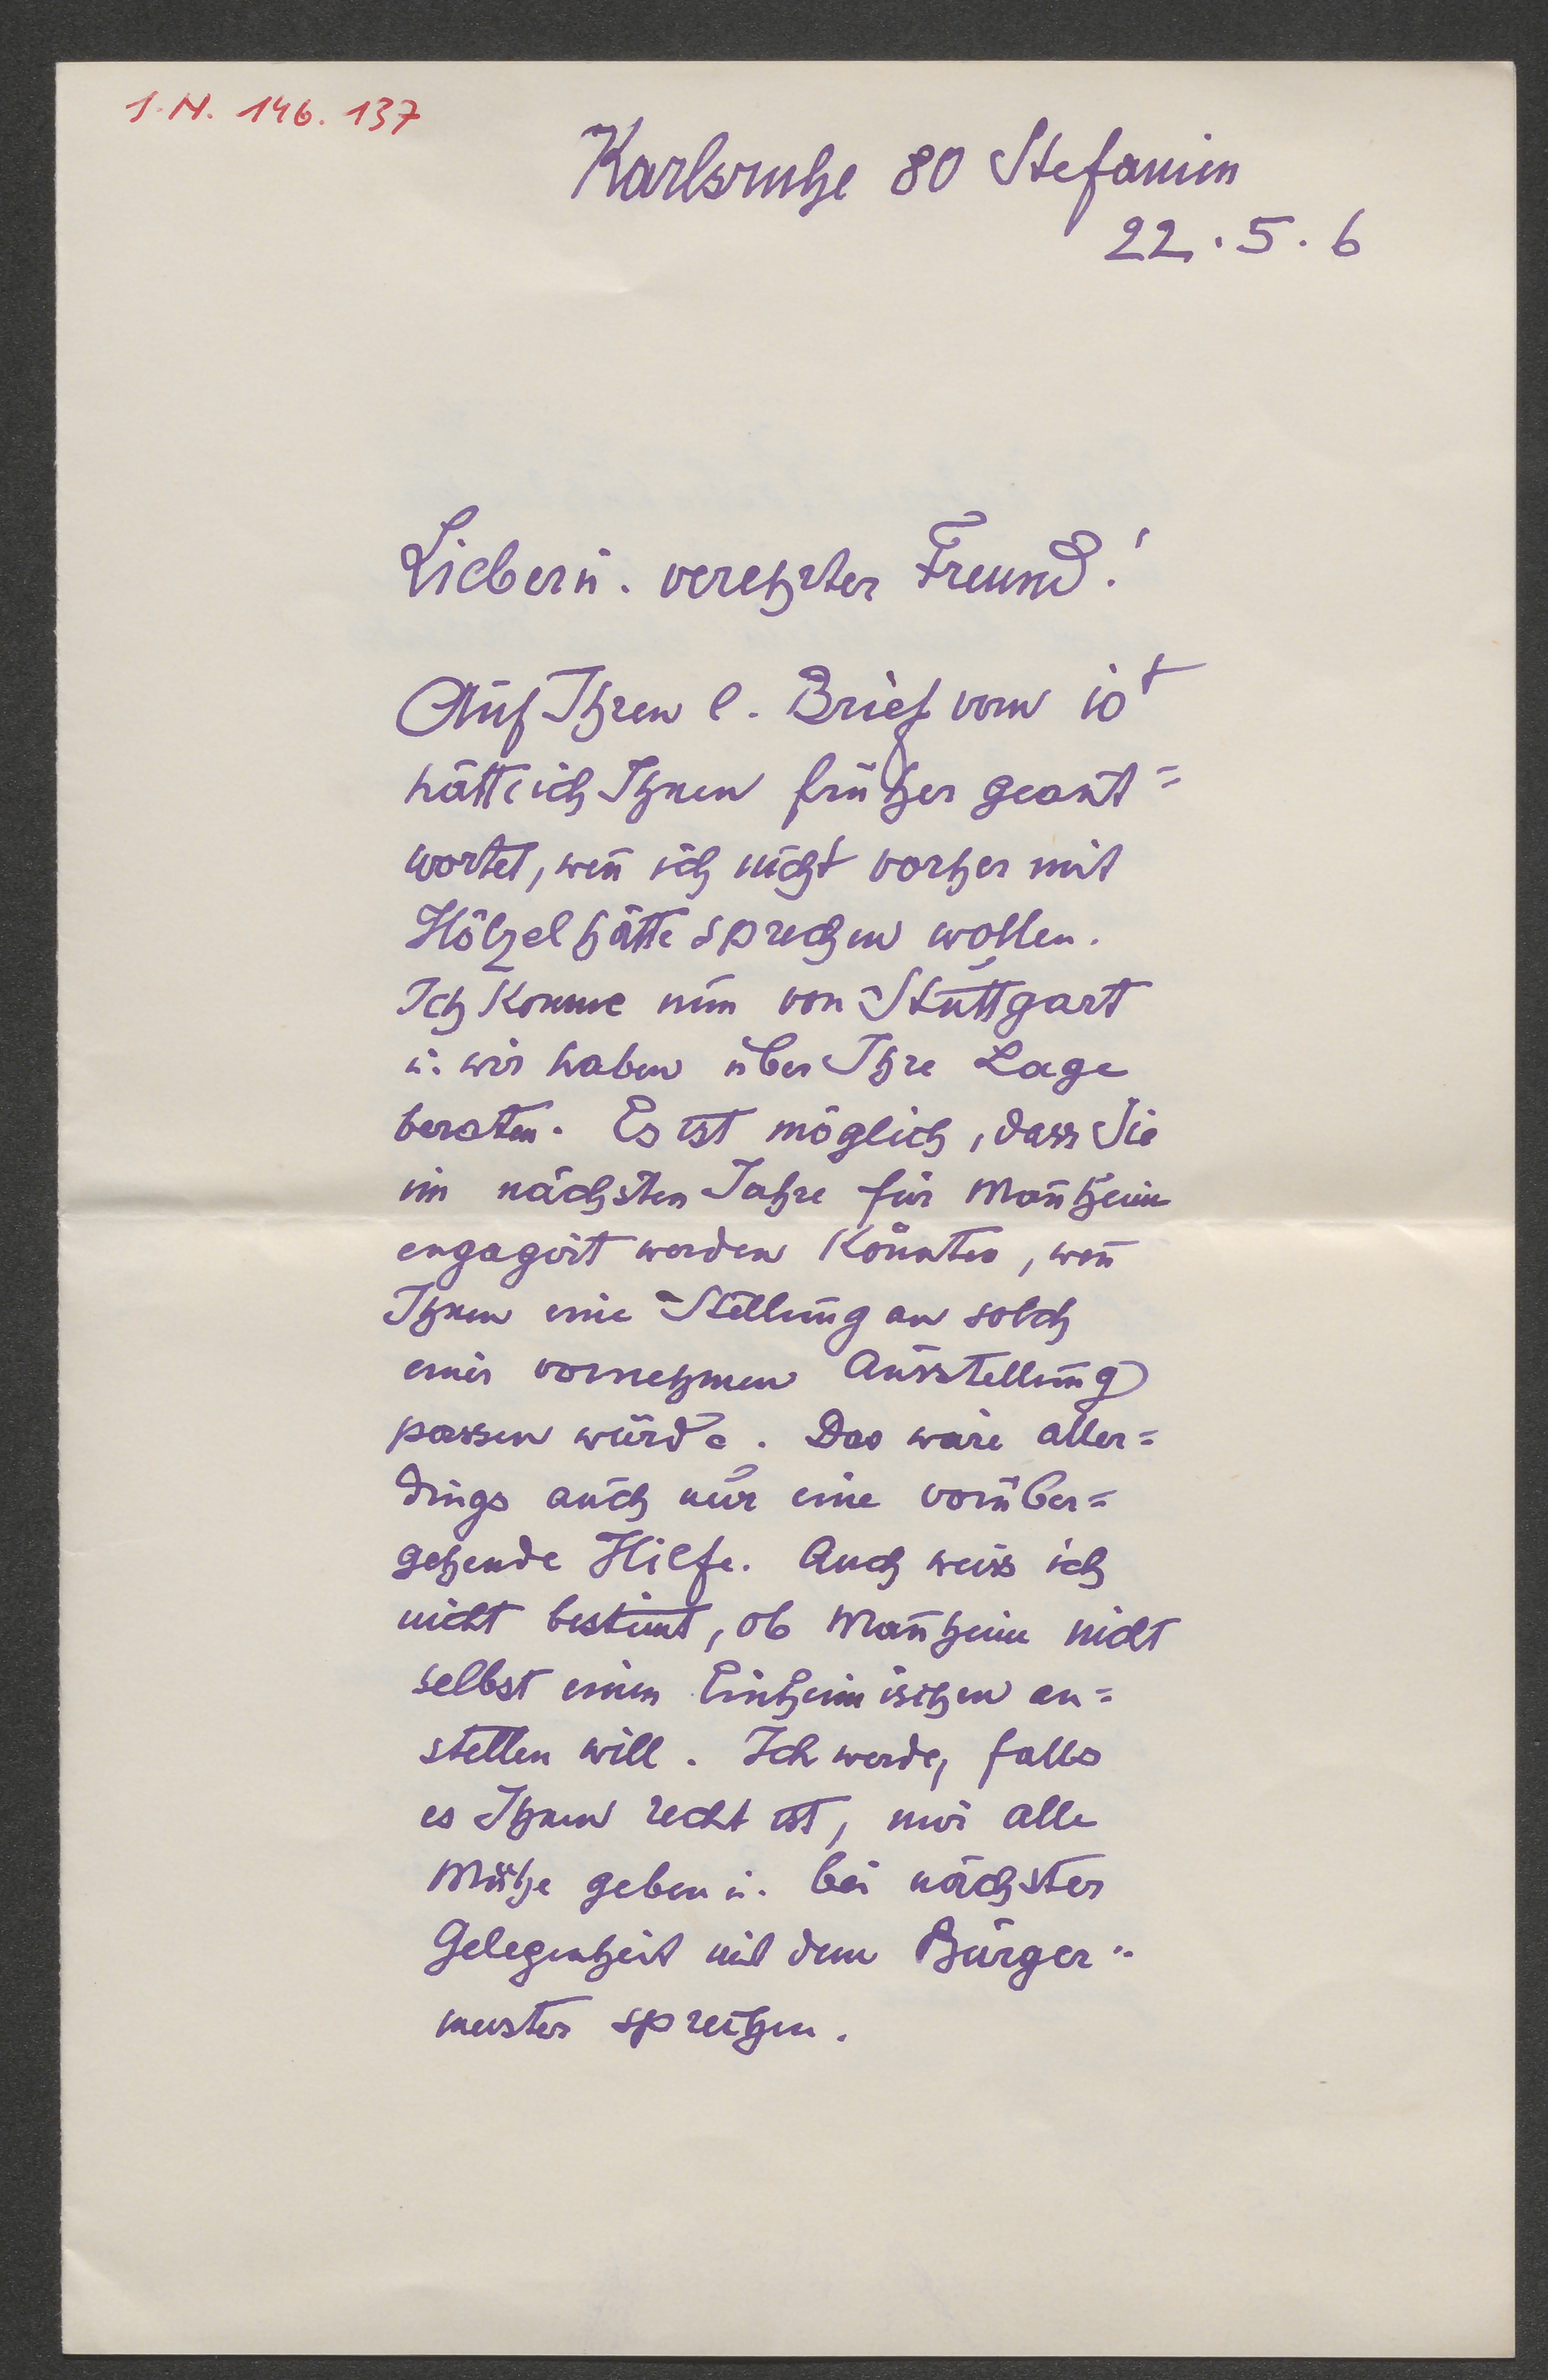 I.N. 146.137
Karlsruhe 80 Stefanien
22.5.6
Lieber u. verehrter Freund!
Auf Ihren l. Brief vom 10t
hätte ich Ihnen früher geant=
wortet, weñ ich nicht vorher mit
Hölzel hätte sprechen wollen.
Ich komme nun von Stuttgart
u. wir haben über Ihre Lage
beraten. Es ist möglich, dass Sie
im nächsten Jahre für Mañheim
engagirt werden könnten, weñ
Ihnen eine Stellung an solch
einer vornehmen Ausstellung
passen würde. Das wäre aller=
dings auch nur eine vorüber=
gehende Hilfe. Auch weiss ich
nicht bestim̄t, ob Mañheim nicht
selbst einen Einheimischen an=
stellen will. Ich werde, falls
es Ihnen recht ist, mir alle
Mühe geben u. bei nächster
Gelegenheit mit dem Bürger=
meister sprechen.